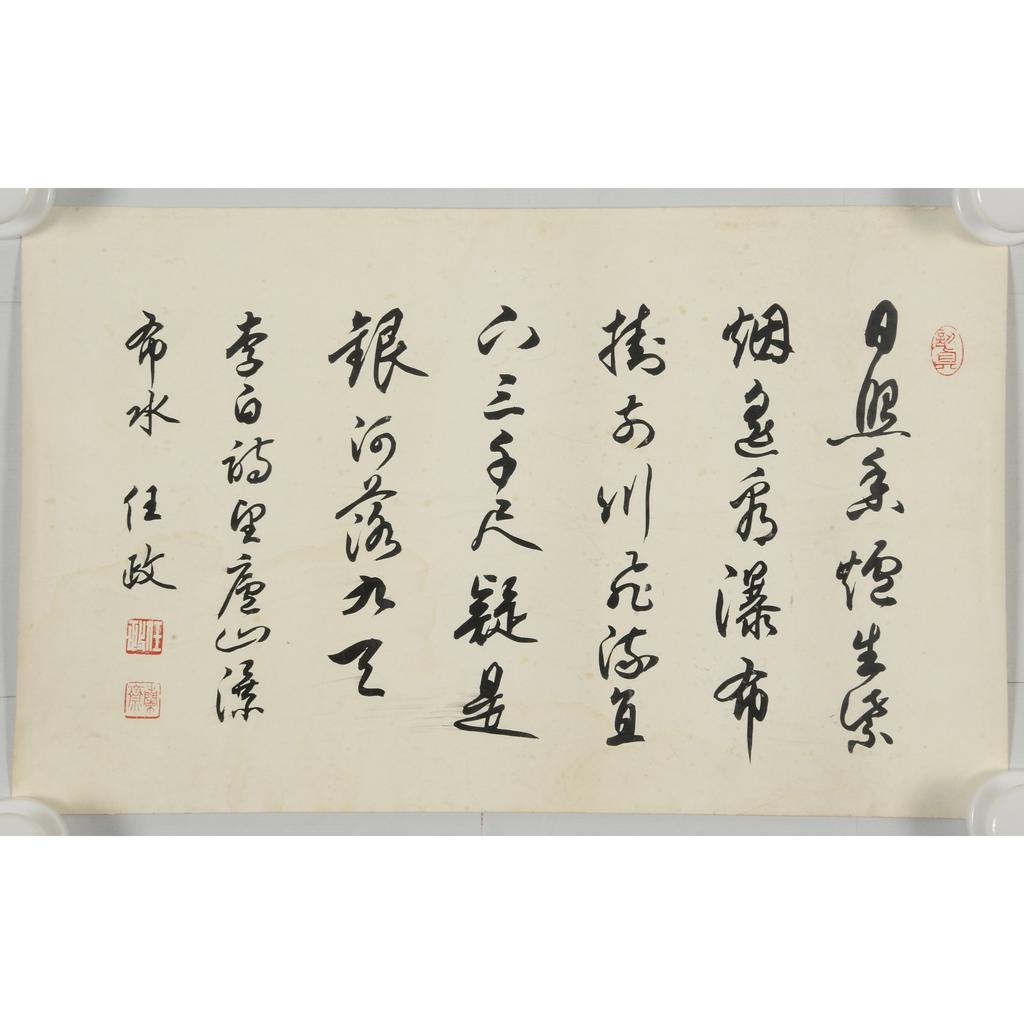 日照香爐生紫
烟遙看瀑布
掛前川飛流直
下三千尺疑是
銀河落九天
李白詩望廬山瀑
布水 任政
任政
蘭齋